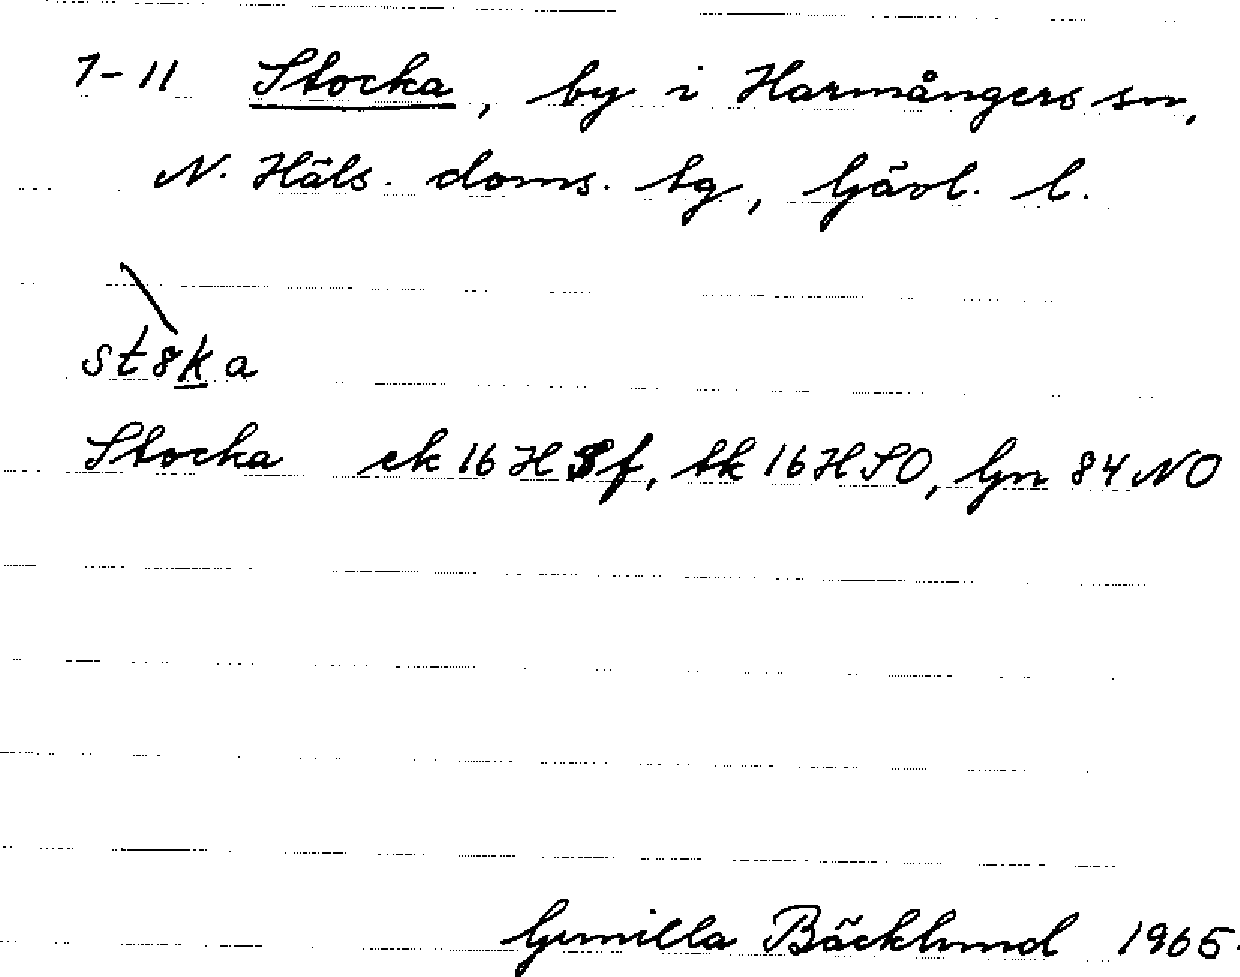 1-11 Stocka, by i Harmångers sn,
N. Häls. doms. tg, Gävl. l.
st8ka
Stocka ek 16 H Sf, tk 16 H SO, Gn 84 NO
Gunilla Bäcklund 1965.